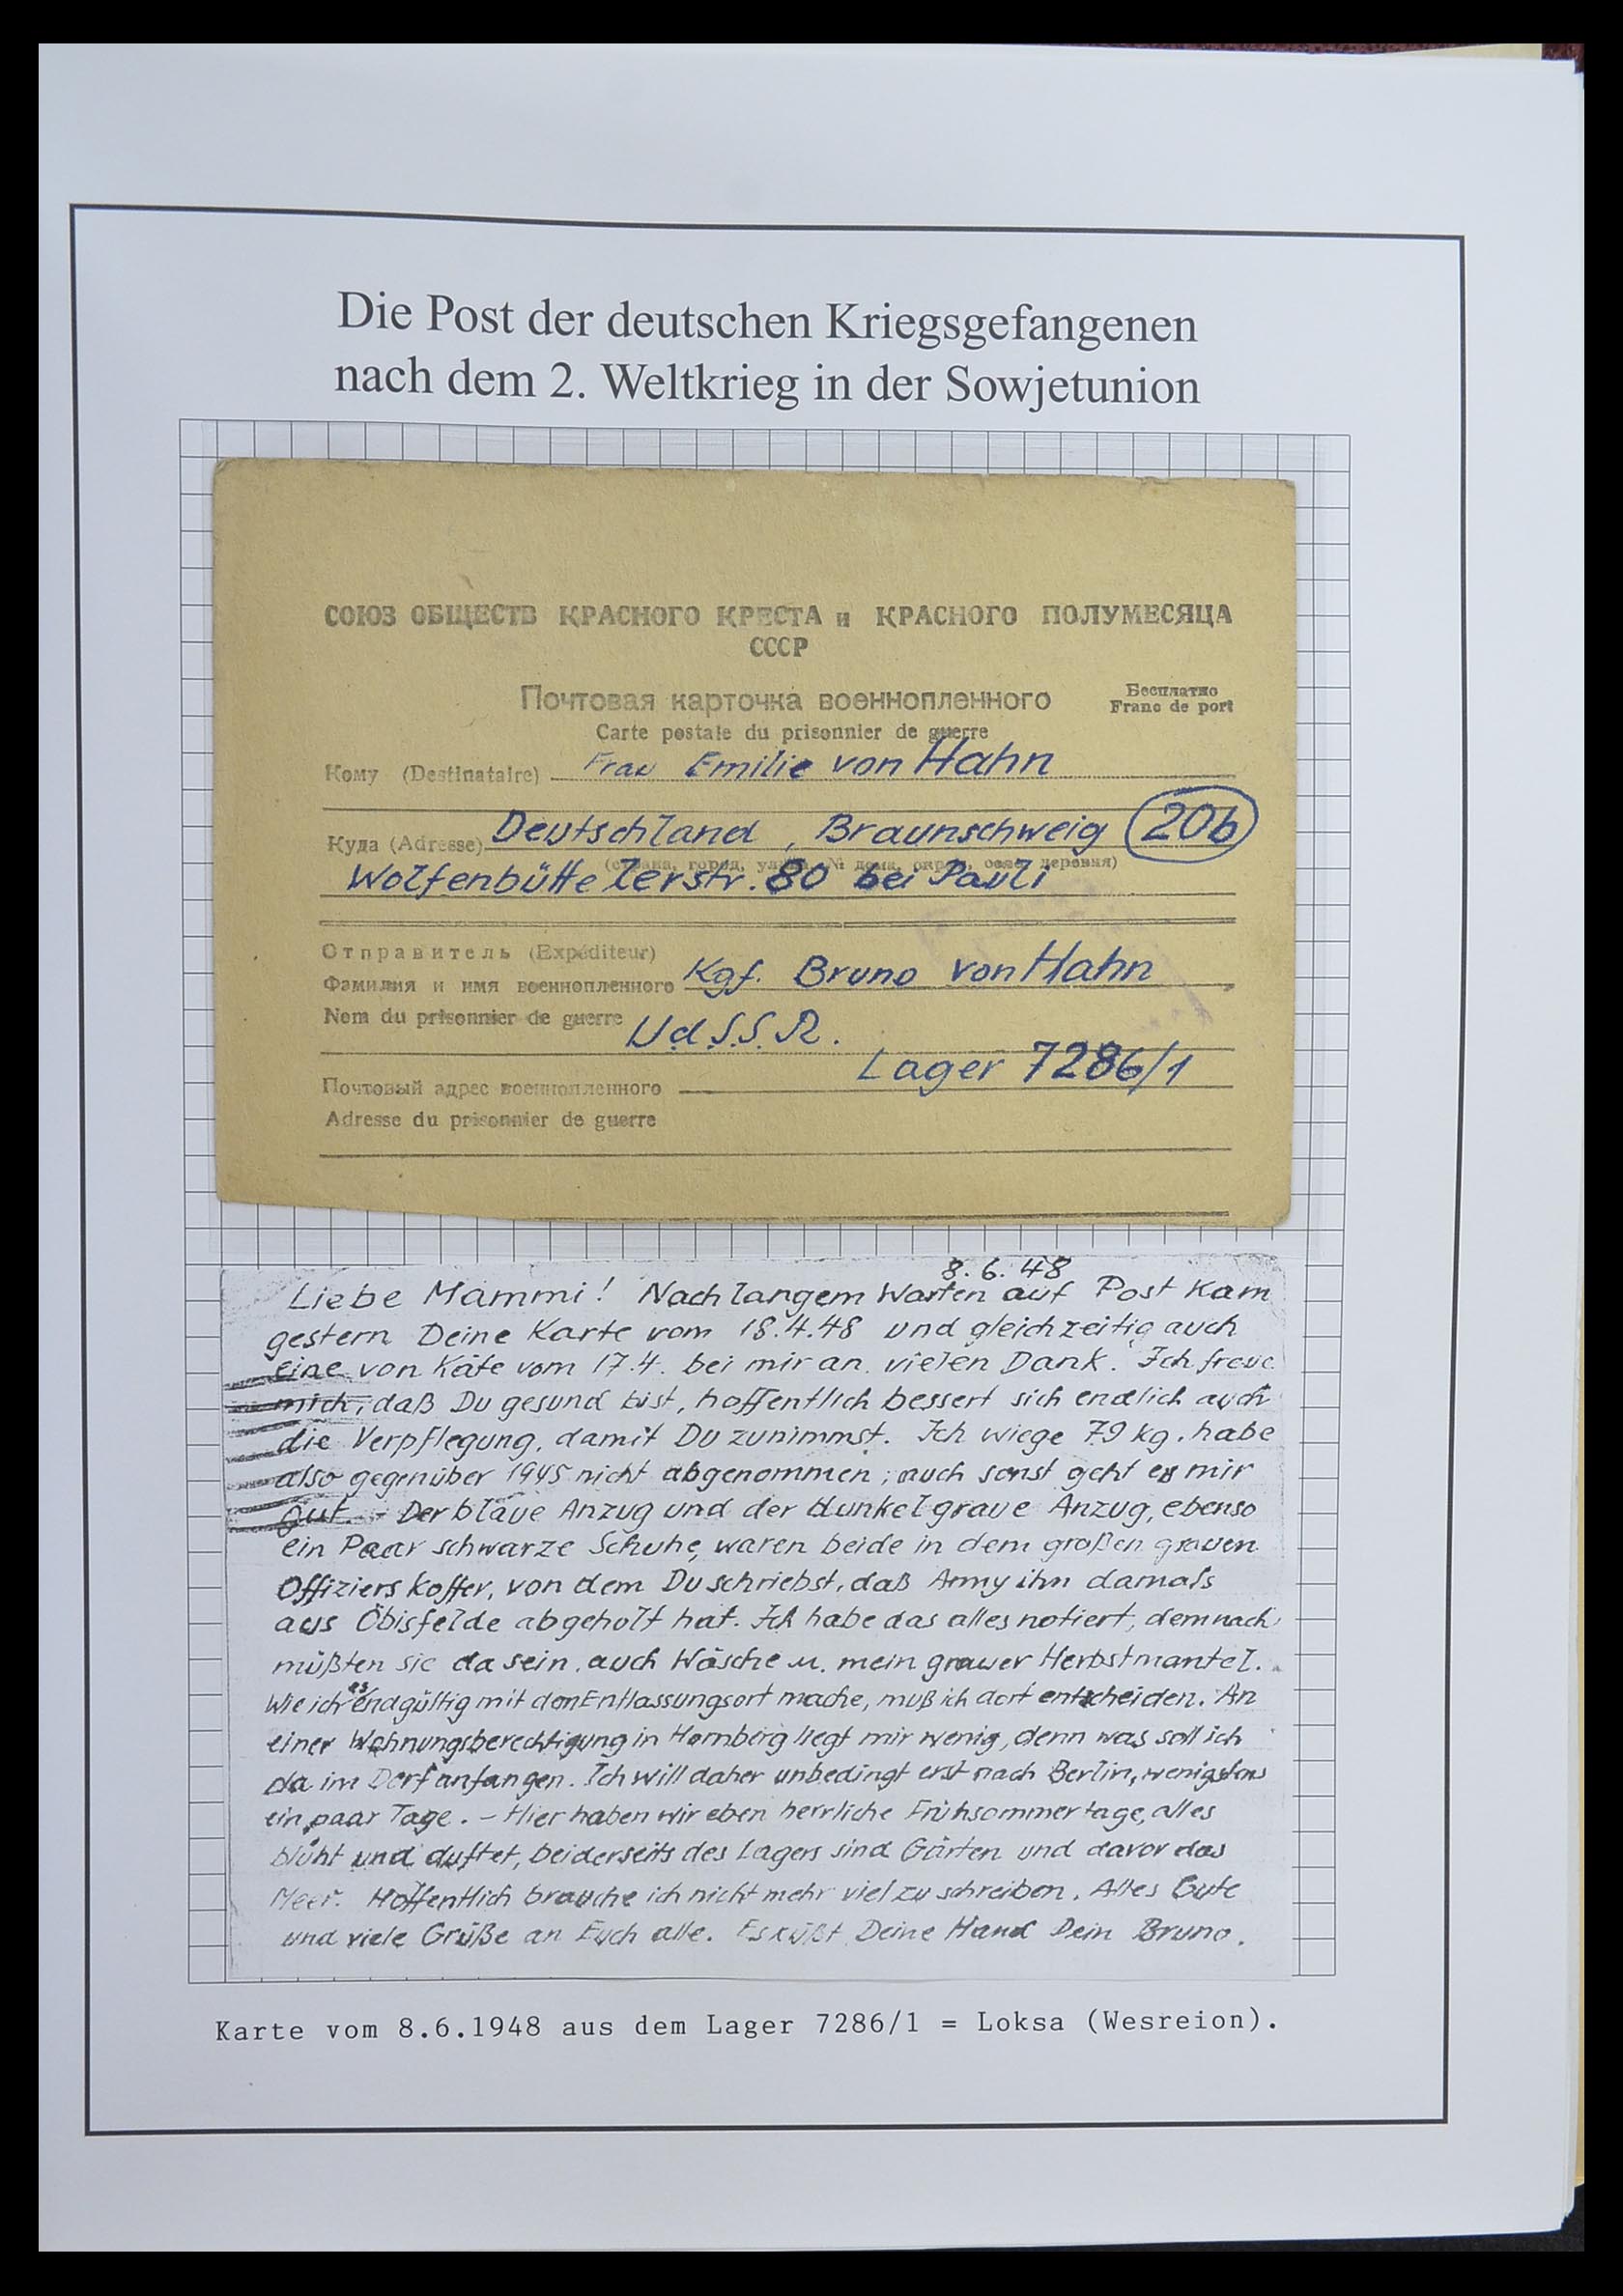 Die Post der deutschen Kriegsgefangenen
nach dem 2. Weltkrieg in der Sowjetunion
СОЮЗ ОБЩЕСТВ КРАСНОГО КРЕСТА и КРАСНОГО ПОЛУМЕСЯЦА
СССР
Почтовая карточка военнопленного
Бесплатно
Franc de port
Carte postale du prisonnier de guerre
Кому (Destinataire) Frau Emilie von Hahn
Куда (Adresse) Deutschland, Braunschweig 20b
(страна, город, улица, № дома, округ, село, деревня)
Wolfenbüttelerstr. 80 bei Pauli
Отправитель (Expéditeur)
Фамилия и имя военнопленного Kgf. Bruno von Hahn
Nom du prisonnier de guerre UdSSR.
Lager 7286/1
Почтовый адрес военнопленного
Adresse du prisonnier de guerre
8. 6. 48
Liebe Mammi! Nach langem Warten auf Post kam
gestern Deine Karte vom 18.4.48 und gleichzeitig auch
eine von Käte vom 17.4. bei mir an. vielen Dank. Ich freue
mich, daß Du gesund bist, hoffentlich bessert sich endlich auch
die Verpflegung, damit Du zunimmst. Ich wiege 79 kg. habe
also gegenüber 1945 nicht abgenommen; auch sonst geht es mir
gut. - Der blaue Anzug und der dunkelgraue Anzug, ebenso
ein Paar schwarze Schuhe, waren beide in dem großen grauen
Offizierskoffer, von dem Du schriebst, daß Army ihn damals
aus Öbisfelde abgeholt hat. Ich habe das alles notiert, demnach
müßten sie da sein, auch Wäsche u. mein grauer Herbstmantel.
Wie ich es endgültig mit dem Entlassungsort mache, muß ich dort entscheiden. An
einer Wohnungsberechtigung in Homberg liegt mir wenig, denn was soll ich
da im Dorf anfangen. Ich will daher unbedingt erst nach Berlin, wenigstens
ein paar Tage. - Hier haben wir eben herrliche Frühsommertage, alles
blüht und duftet, beiderseits des Lagers sind Gärten und davor das
Meer. Hoffentlich brauche ich nicht mehr viel zu schreiben. Alles Gute
und viele Grüße an Euch alle. Es küßt Deine Hand Dein Bruno.
Karte vom 8.6.1948 aus dem Lager 7286/1 = Loksa (Wesreion).